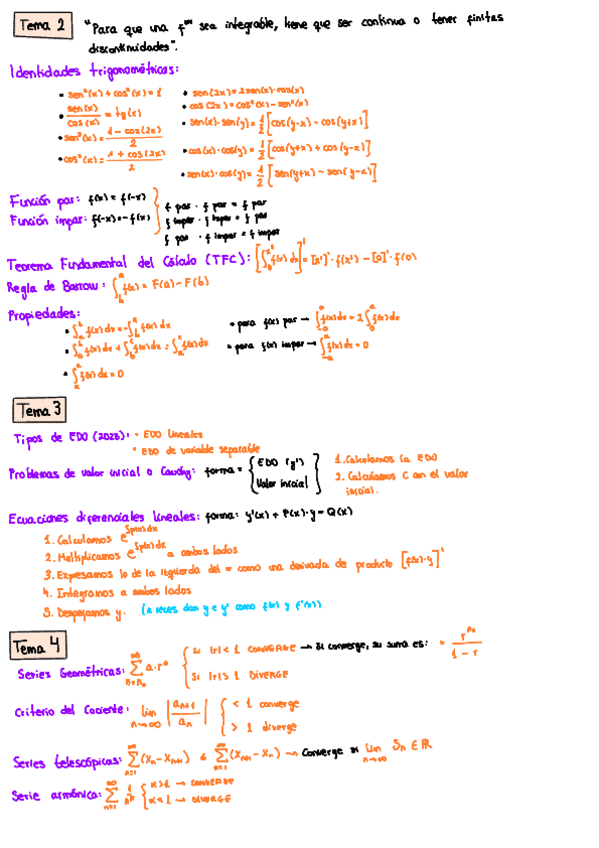 Tema 2 "Para que una fⁿ sea integrable, tiene que ser continua o tener finitas
discontinuidades".
Identidades trigonométricas:
• sen²(x) + cos²(x) = 1
• sen(x)/cos(x) = tg(x)
• sen²(x) = (1 - cos(2x))/2
• cos²(x) = (1 + cos(2x))/2
• sen(2x) = 2sen(x)·cos(x)
• cos(2x) = cos²(x) - sen²(x)
• sen(x)·sen(y) = 1/2 [cos(y-x) - cos(y+x)]
• cos(x)·cos(y) = 1/2 [cos(y+x) + cos(y-x)]
• sen(x)·cos(y) = 1/2 [sen(y+x) - sen(y-x)]
Función par: f(x) = f(-x)
Función impar: f(-x) = -f(x)
f par · f par = f par
f impar · f impar = f par
f par · f impar = f impar
Teorema Fundamental del Cálculo (TFC): [∫ f(x) dx]' = [x²]'· f(x²) - [0]'· f(0)
Regla de Barrow: ∫_b^a f(x) = F(a) - F(b)
Propiedades:
• ∫_a^b f(x) dx = -∫_b^a f(x) dx
• para f(x) par → ∫_{-a}^a f(x) dx = 2∫_0^a f(x) dx
• para f(x) impar → ∫_{-a}^a f(x) dx = 0
• ∫_a^a f(x) dx = 0
Tema 3
Tipos de EDO (2025): • EDO lineales
• EDO de variable separable
Problemas de valor inicial o Cauchy: forma = { EDO (y')
Valor inicial }
1. Calculamos la EDO
2. Calculamos C con el valor
inicial.
Ecuaciones diferenciales lineales: forma: y'(x) + P(x)·y = Q(x)
1. Calculamos e^∫p(x)dx
2. Multiplicamos e^∫p(x)dx a ambos lados
3. Expresamos lo de la izquierda del = como una derivada de producto [f(x)·y]'
4. Integramos a ambos lados
5. Despejamos y. (a veces dan y e y' como f(x) y f'(x))
Tema 4
Series Geométricas: ∑_{n=n₀}^∞ a·rⁿ { si |r| < 1 CONVERGE → Si converge, su suma es: = r^{n₀}/(1 - r)
si |r| > 1 DIVERGE
Criterio del Cociente: lim_{n→∞} |aₙ₊₁/aₙ| { < 1 converge
> 1 diverge
Series telescópicas: ∑_{n=1}^∞ (Xₙ - Xₙ₊₁) ó ∑_{n=1}^∞ (Xₙ₊₁ - Xₙ) → Converge si lim_{n→∞} Sₙ ∈ ℝ
Serie armónica: ∑_{n=1}^∞ 1/n^α { α > 1 → CONVERGE
α < 1 → DIVERGE